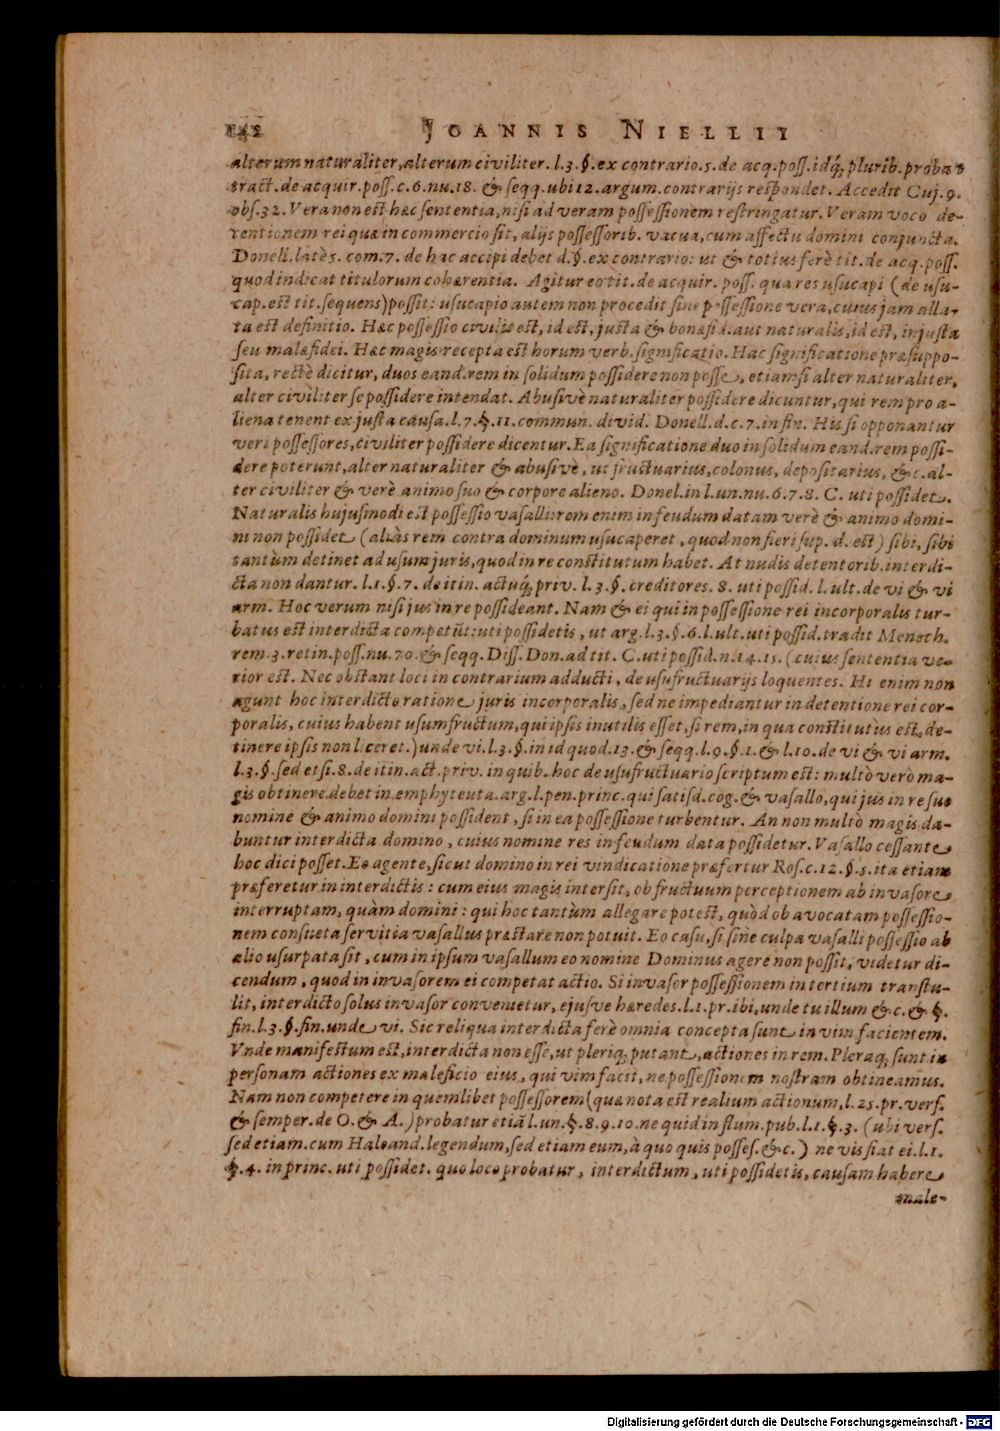 142 JOANNIS NIELLII
alterum naturaliter, alterum civiliter. l.3.§. ex contrario. 5. de acq. poss. idq́; plurib. probat
tract. de acquir. poss. c.6. nu.18. & seqq. ubi 12. argum. contrarijs respondet. Accedit Cuj. 9.
obs. 32. Vera non est hæc sententia, nisi ad veram possessionem restringatur. Veram voco de-
tentionem rei quæ in commercio sit, alijs possessorib. vacua, cum affectu domini conjuncta.
Donell. latè 5. com. 7. de hac accipi debet d. §. ex contrario: ut & totius ferè tit. de acq. poss.
quod indicat titulorum cohærentia. Agitur eo tit. de acquir. poss. qua res usucapi (de usu-
cap. est tit. sequens) possit: usucapio autem non procedit sine possessione vera, cuius jam alla-
ta est definitio. Hæc possessio civilis est, id est, justa & bonæ fid. aut naturalis, id est, injusta
seu malæ fidei. Hæc magis recepta est horum verb. significatio. Hac significatione præsuppo-
sita, rectè dicitur, duos eand. rem in solidum possidere non posse, etiamsi alter naturaliter,
alter civiliter se possidere intendat. Abusivè naturaliter possidere dicuntur, qui rem pro a-
liena tenent ex justa causa. l.7.§.11. commun. divid. Donell. d. c. 7. in fin. His si opponantur
veri possessores, civiliter possidere dicentur. Ea significatione duo in solidum eand. rem possi-
dere poterunt, alter naturaliter & abusivè, ut fructuarius, colonus, depositarius, &c. al-
ter civiliter & verè animo suo & corpore alieno. Donel. in l. un. nu. 6.7.8. C. uti possidet.
Naturalis hujusmodi est possessio vasalli: rem enim in feudum datam verè & animo domi-
ni non possidet (aliàs rem contra dominum usucaperet, quod non fieri sup. d. est) sibi, sibi
tantùm detinet ad usum juris, quod in re constitutum habet. At nudis detentorib. interdi-
cta non dantur. l.1.§.7. de itin. actuq́; priv. l.3.§. creditores. 8. uti possid. l. ult. de vi & vi
arm. Hoc verum nisi jus in re possideant. Nam & ei qui in possessione rei incorporalis tur-
batus est interdicta competūt: uti possidetis, ut arg. l.3.§.6. l. ult. uti possid. tradit Menoch.
rem. 3. retin. poss. nu. 70. & seqq. Diss. Don. ad tit. C. uti possid. n. 14. 15. (cuius sententia ve-
rior est. Nec obstant loci in contrarium adducti, de usufructuarijs loquentes. Hi enim non
agunt hoc interdicto ratione juris incorporalis, sed ne impediantur in detentione rei cor-
poralis, cuius habent usumfructum, qui ipsis inutilis esset, si rem, in qua constitutus est, de-
tinere ipsis non liceret.) unde vi. l.3.§. in id quod. 13. & seqq. l.9.§.1. & l.10. de vi & vi arm.
l.3.§. sed et si. 8. de itin. act. priv. in quib. hoc de usufructuario scriptum est: multò verò ma-
gis obtinere debet in emphyteuta. arg. l. pen. princ. qui satisd. cog. & vasallo, qui jus in re suo
nomine & animo domini possident, si in ea possessione turbentur. An non multò magis da-
buntur interdicta domino, cuius nomine res in feudum data possidetur. Vasallo cessante
hoc dici posset. Eo agente, sicut domino in rei vindicatione præfertur Ros. c. 12. §. 5. ita etiam
præferetur in interdictis: cum eius magis intersit, ob fructuum perceptionem ab invasore
interruptam, quàm domini: qui hoc tantùm allegare potest, quòd ob avocatam possessio-
nem consueta servitia vasallus præstare non potuit. Eo casu, si sine culpa vasalli possessio ab
alio usurpata sit, cum in ipsum vasallum eo nomine Dominus agere non possit, videtur di-
cendum, quod in invasorem ei competat actio. Si invasor possessionem in tertium transtu-
lit, interdicto solus invasor convenietur, ejusve hæredes. l.1. pr. ibi, unde tu illum &c. & §.
fin. l.3.§. fin. unde vi. Sic reliqua interdicta ferè omnia concepta sunt in vim facientem.
Vnde manifestum est, interdicta non esse, ut plerique putant, actiones in rem. Pleraq; sunt in
personam actiones ex maleficio eius, qui vim facit, ne possessionem nostram obtineamus.
Nam non competere in quemlibet possessorem (quæ nota est realium actionum, l. 25. pr. vers.
& semper. de O. & A.) probatur etiā l. un. §. 8. 9. 10. ne quid in flum. pub. l.1.§.3. (ubi vers.
sed etiam. cum Haloand. legendum, sed etiam eum, à quo quis posses. &c.) ne vis fiat ei. l.1.
§.4. in princ. uti possidet. quo loco probatur, interdictum, uti possidetis, causam habere
male-
Digitalisierung gefördert durch die Deutsche Forschungsgemeinschaft - DFG